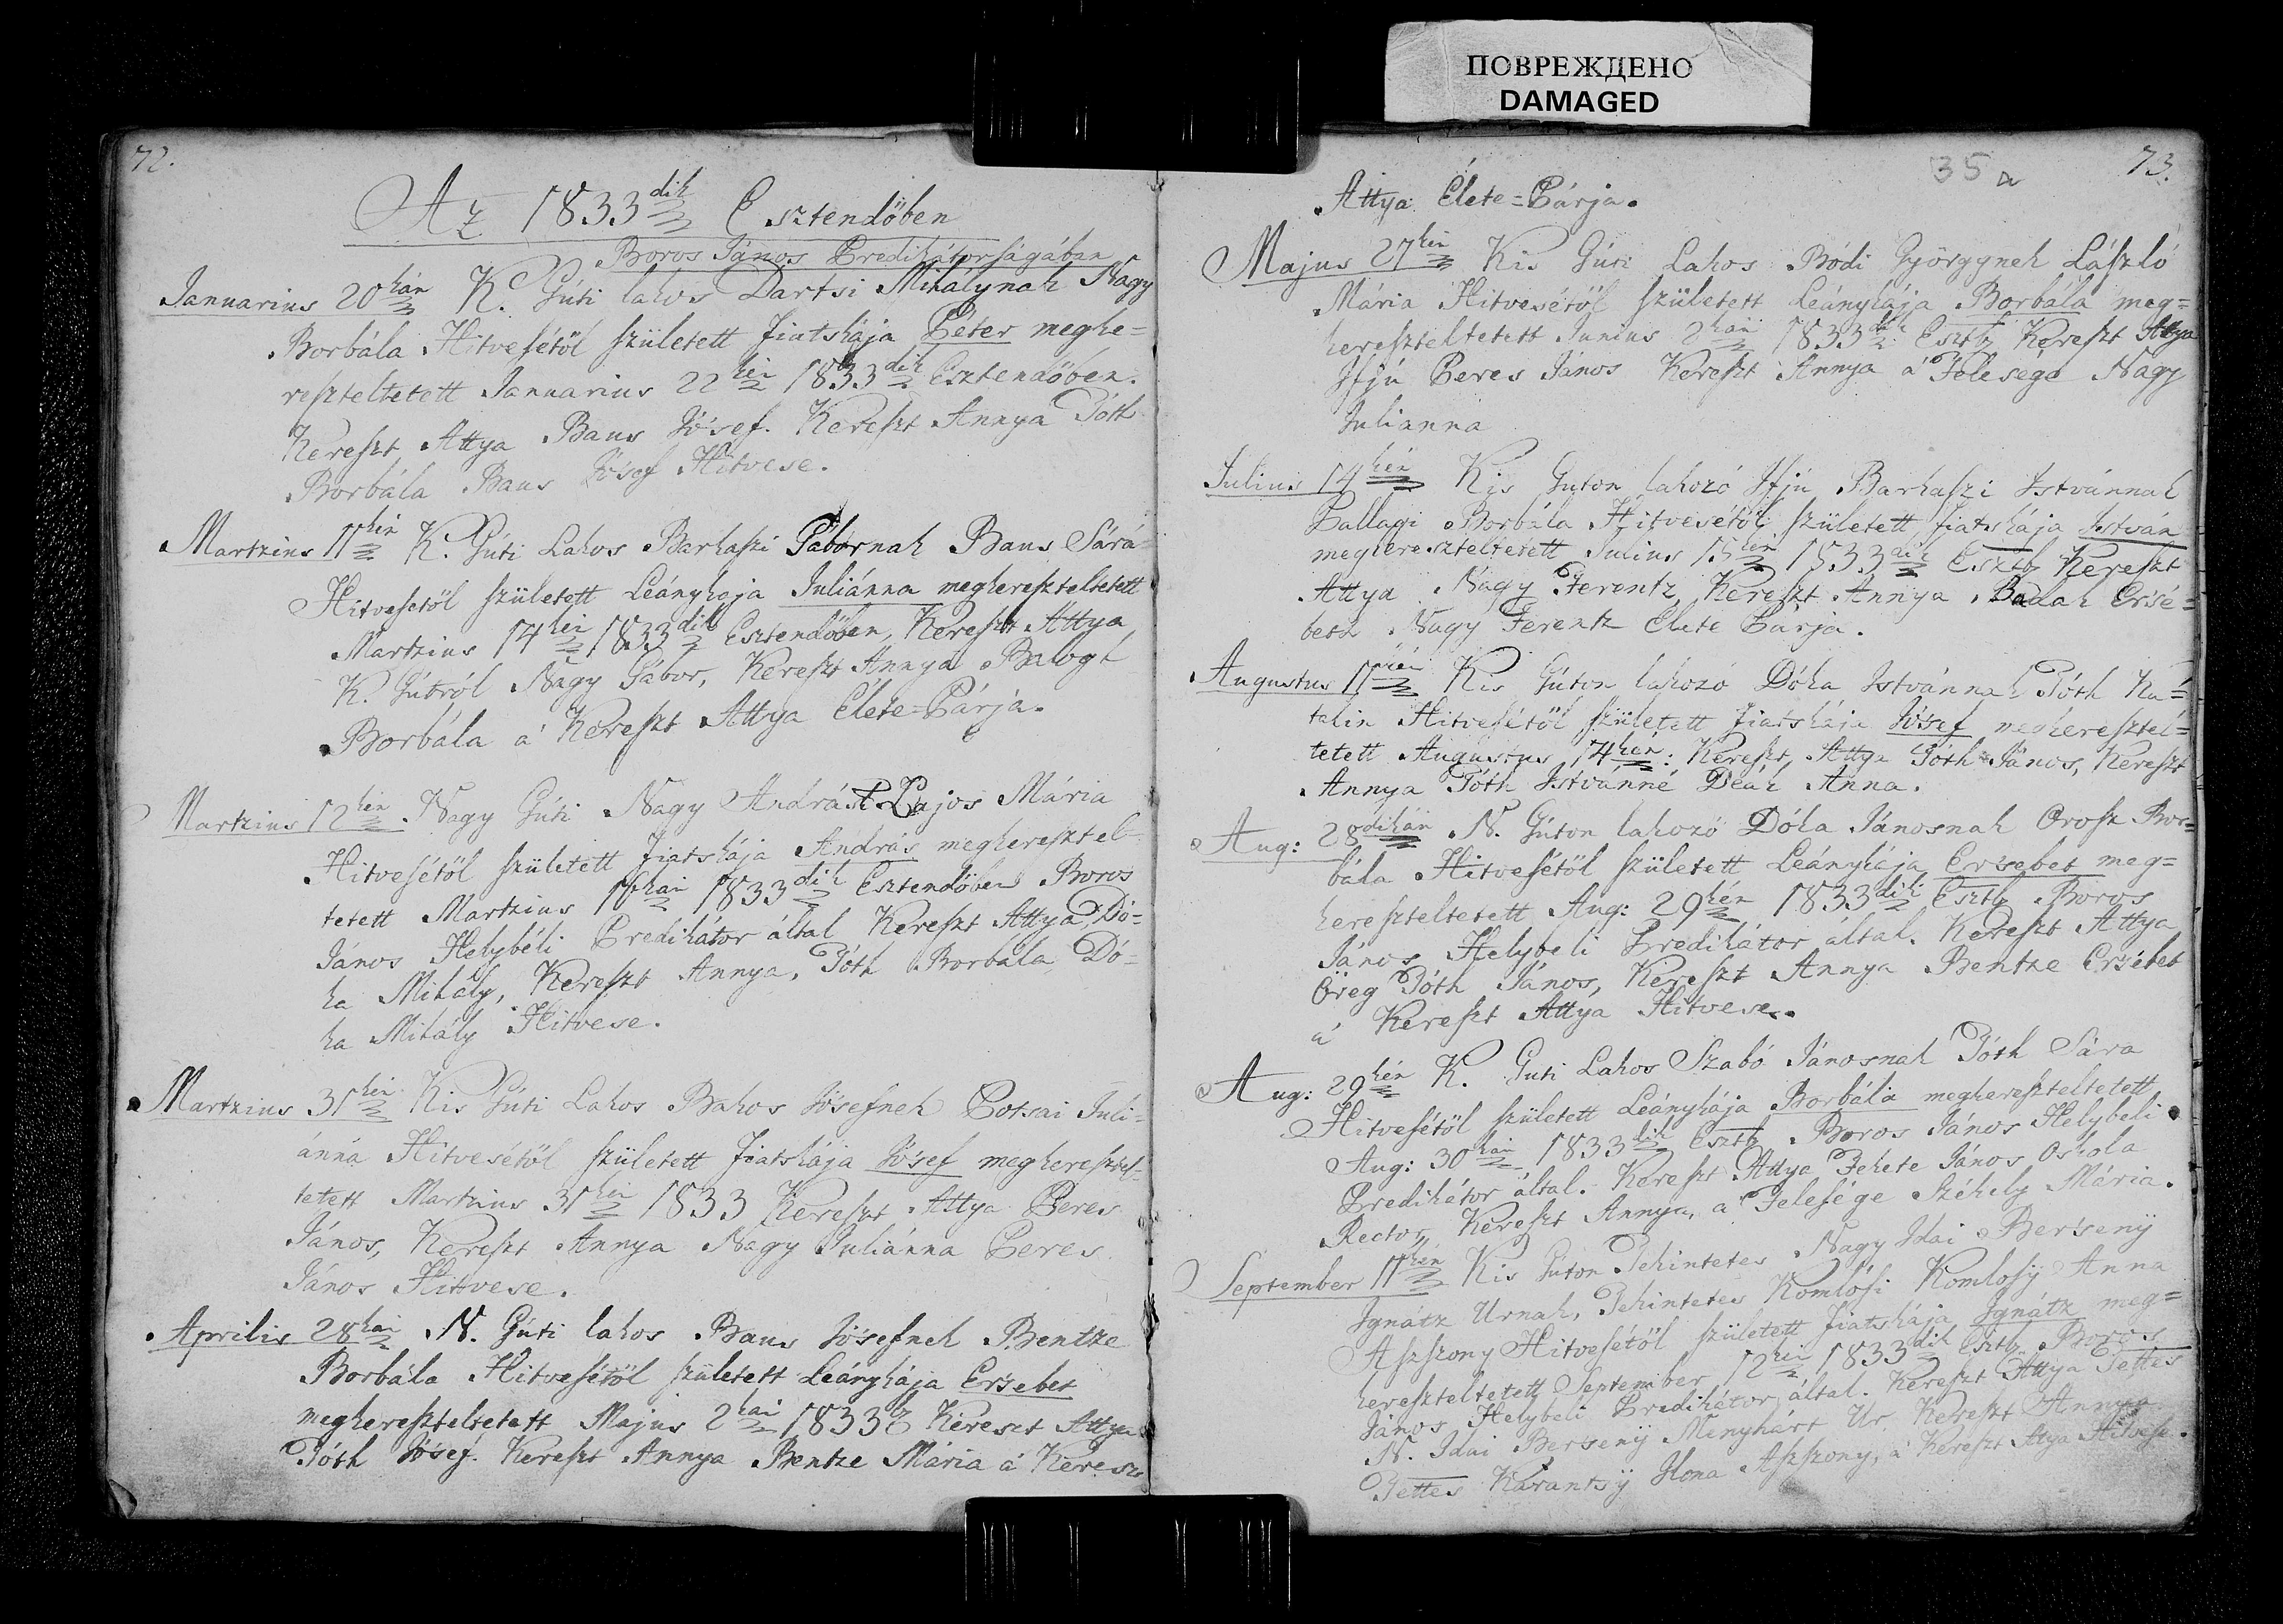 ПОВРЕЖДЕНО
DAMAGED
72.
Az 1833dik Esztendőben
Boros János Predikátorságában
Januarius 20kán K. Gúti lakos Dartsi Mihálynak Nagy
Borbála Hitvesétől született fiatskája Péter megke=
reszteltetett Januarius 22kén 1833dik Esztendőben.
Kereszt Attya Baus Jósef. Kereszt Annya Tóth
Borbála Baus Jósef Hitvese.
Martzius 11kén K. Gúti Lakos Barkaszi Gábornak Baus Sára
Hitvesetől született Leánykaja Juliánna megkereszteltetett
Martzius 14kén 1833dik Esztendőben, Kereszt Attya
K. Gútról Nagy Gábor, Kereszt Annya Balogh
Borbála a' Kereszt Attya Élete=Párja.
Martzius 12kén Nagy Gúti Nagy András Lajos Mária
Hitvesétől született fiatskája András megkeresztel
tetett Martzius 16kán 1833dik Esztendőben Boros
János Helybéli Predikátor által Kereszt Attya, Dó=
ka Mihály, Kereszt Annya, Tóth Borbála Dó=
ka Mihály Hitvese.
Martzius 31kén Kis Gúti Lakos Bakos Jósefnek Potsai Juli=
ánna Hitvesétől született fiatskája Jósef megkeresztel=
tetett Martzius 31kén 1833 Kereszt Attya Peres
János, Kereszt Annya Nagy Juliánna Peres
János Hitvese.
Aprilis 28kán N. Gúti lakos Baus Jósefnek Bentze
Borbála Hitvesétől született Leánykája Ersebet
megkereszteltetett Majus 2kán 1833b Kereszt Attya
Tóth Jósef. Kereszt Annya Bentze Mária a' Kereszt
35a 73.
Attya Élete=Párja.
Majus 27kén Kis Gúti Lakos Bódi Györgynek László
Mária Hitvesétől született Leánykája Borbála meg=
kereszteltetett Junius 2kán 1833dik Esztb Kereszt Attya
Ifjú Peres János Kereszt Annya a' Felesége Nagy
Julianna
Julius 14kén Kis Guton lakozó Ifjú Barkaszi Istvánnak
Pallagi Borbála Hitvesétől született fiatskája István
megkereszteltetett Julius 15kén 1833dik Esztb Kereszt
Attya Nagy Ferentz, Kereszt Annya Badak Ersé=
beth Nagy Ferentz Elete Párja.
Augustus 11kén Kis Gúton lakozó Dóka Istvánnak Tóth Ka=
talin Hitvesétől született fiatskája Jósef megkeresztel=
tetett Augustus 14kén: Kereszt, Attya Tóth János, Kereszt
Annya Tóth Istvánné Deák Anna.
Aug: 28dikán N. Gúton lakozó Dóka Jánosnak Orosz Bor=
bála Hitvesétől született Leánykája Ersebet meg=
kereszteltetett Aug: 29kén 1833dik Esztb Boros
János Helybeli Predikátor által. Kereszt Attya
Öreg Tóth János, Kereszt Annya Bentze Ersébet
a' Kereszt Attya Hitvese.
Aug: 29kén K. Guti Lakos Szabó Jánosnak Tóth Sára
Hitvesétől született Leánykája Borbála megkereszteltetett
Aug: 30kán 1833dik Esztb Boros János Helybeli
Predikátor által. Kereszt Attya Fekete János Oskola
Rector, Kereszt Annya, a' Felesége Székely Mária.
September 11kén Kis Guton Tekintetes Nagy Idai Bersenÿ
Ignátz Urnak, Tekintetes Komlósi Komlosÿ Anna
Aszszony Hitvesétől született fiatskája Ignátz meg=
kereszteltetett September 12kén 1833dik Esztb Boros
János Helybeli Predikátor által. Kereszt Attya Tettes
N. Idai Bersenÿ Menyhárt Ur, Kereszt Annya
Tettes Karantsÿ Ilona Aszszony, a' Kereszt Atya Hitvese.